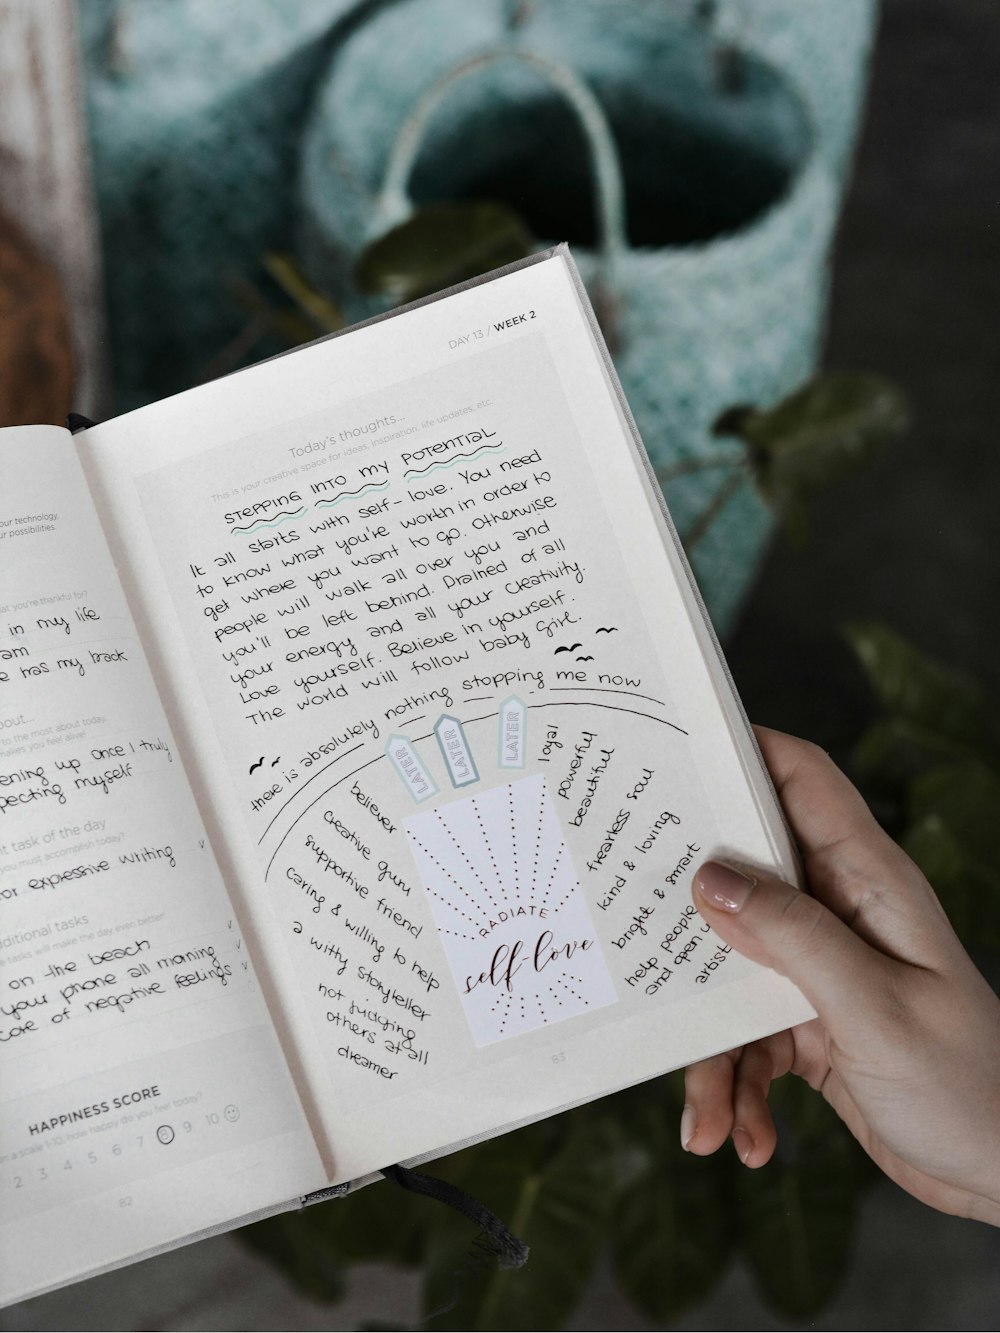 our technology,
ur possibilities.
at you're thankful for?
in my life
am
e has my back
out...
to the most about today.
makes you feel alive!
ening up once I truly
pecting myself
t task of the day
you must accomplish today?
or expressive writing
ditional tasks
tasks will make the day even better!
on the beach
your phone all morning
core of negative feelings
HAPPINESS SCORE
on a scale 1-10, how happy do you feel today?
2 3 4 5 6 7 8 9 10
82
DAY 13 / WEEK 2
Today's thoughts...
This is your creative space for ideas, inspiration, life updates, etc.
STEPPING INTO MY POTENTIAL
It all starts with self-love. You need
to know what you're worth in order to
get where you want to go. Otherwise
people will walk all over you and
you'll be left behind. Drained of all
your energy and all your creativity.
Love yourself. Believe in yourself.
The world will follow baby girl.
there is absolutely nothing stopping me now
LATER
LATER
LATER
believer
creative guru
supportive friend
caring & willing to help
a witty storyteller
not judging
others at all
dreamer
RADIATE
self-love
loyal
powerful
beautiful
fearless soul
kind & loving
bright & smart
help people
and open
artist
83